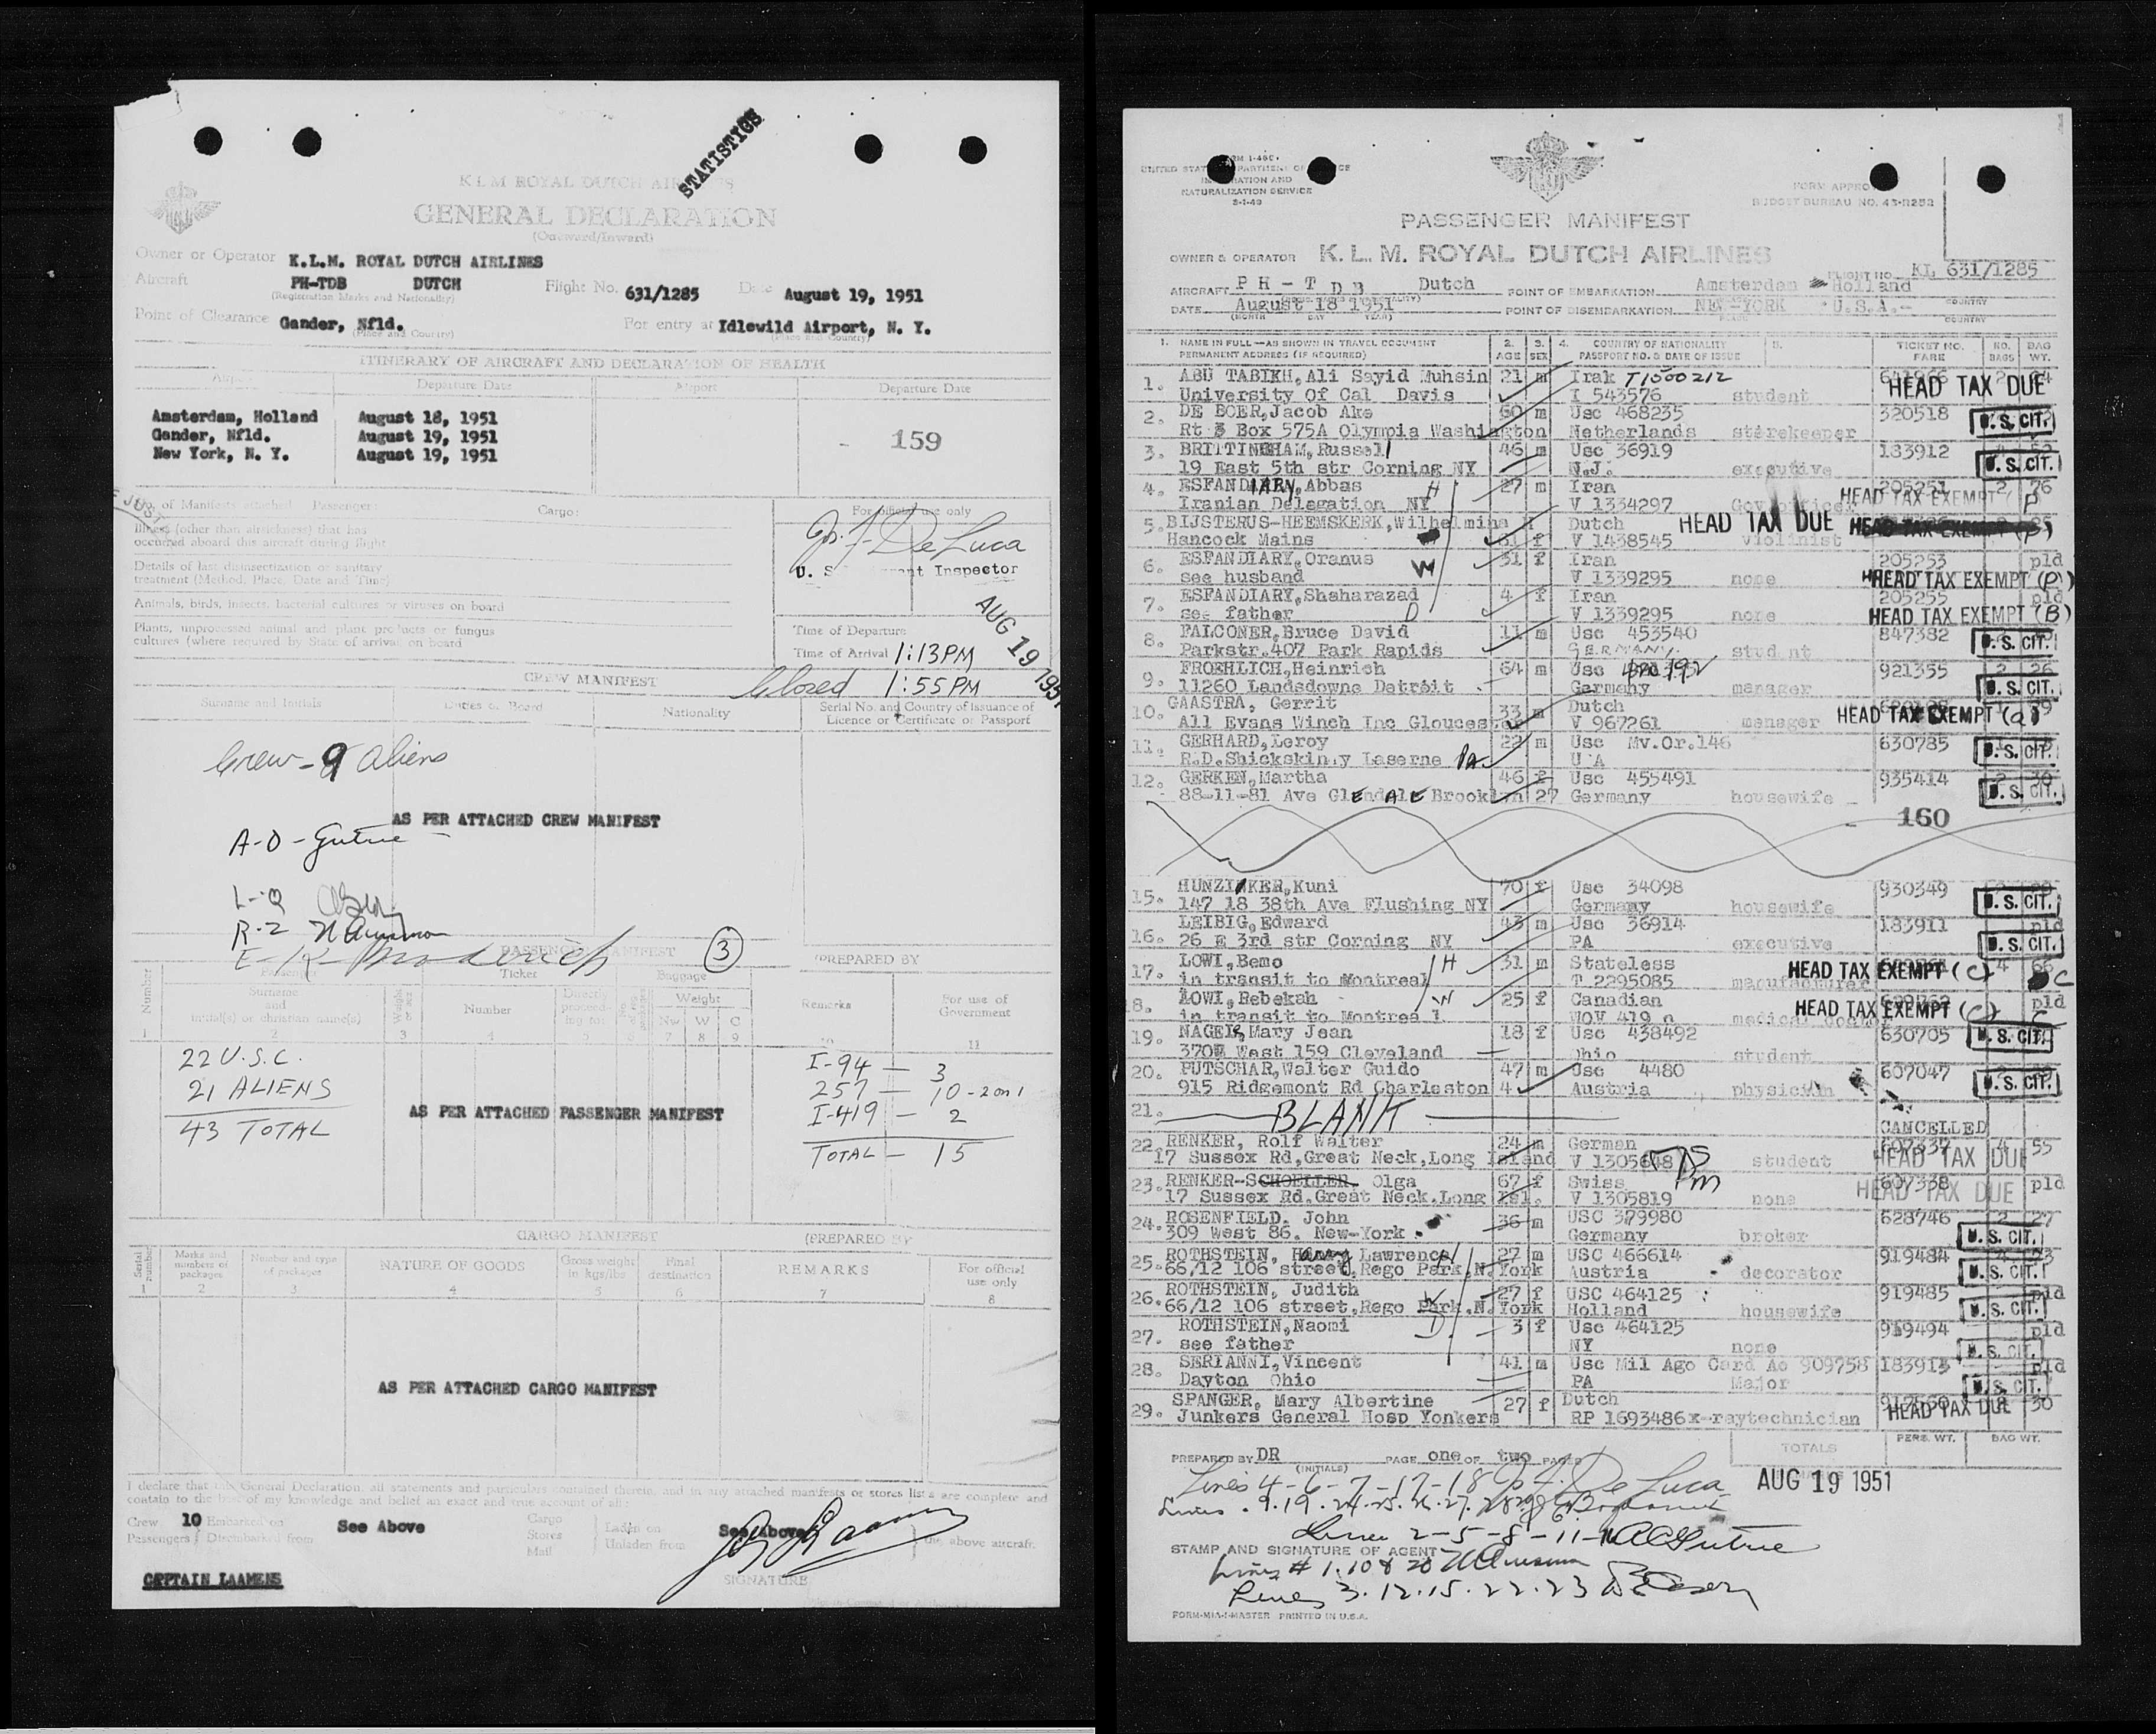 STATISTICS
K L M ROYAL DUTCH AIRLINES
GENERAL DECLARATION
(Outward/Inward)
Owner or Operator K.L.M. ROYAL DUTCH AIRLINES
Aircraft PH-TDB DUTCH Flight No. 631/1285 Date August 19, 1951
(Registration Marks and Nationality)
Point of Clearance Gander, Nfld. For entry at Idlewild Airport, N. Y.
(Place and Country) (Place and Country)
ITINERARY OF AIRCRAFT AND DECLARATION OF HEALTH
Airport Departure Date Airport Departure Date
Amsterdam, Holland August 18, 1951
Gander, Nfld. August 19, 1951
New York, N. Y. August 19, 1951
- 159
No. of Manifests attached Passenger: Cargo: For official use only
Illness (other than airsickness) that has
occurred aboard this aircraft during flight
J. F. De Luca
U. S. Inspector
Details of last disinsectization or sanitary
treatment (Method, Place, Date and Time)
Animals, birds, insects, bacterial cultures or viruses on board
Plants, unprocessed animal and plant products or fungus
cultures (where required by State of arrival) on board
AUG 19 1951
Time of Departure
Time of Arrival 1:13PM
Closed 1:55PM
CREW MANIFEST
Surname and Initials Duties on Board Nationality Serial No. and Country of Issuance of
Licence or Certificate or Passport
Crew - 9 aliens
AS PER ATTACHED CREW MANIFEST
A-O - Gutrie
L-Q
R-Z
E-K - Broderick
PASSENGER MANIFEST 3 (PREPARED BY
Number Passenger Ticket Baggage
Surname
and
initial(s) or christian name(s)
Number Directly proceeding to: Weight Remarks For use of
Government
Nw W C
1 2 3 4 5 7 8 9 10 11
22 U.S.C.
21 ALIENS
43 TOTAL
AS PER ATTACHED PASSENGER MANIFEST
I-94 — 3
257 — 10 - 2 on 1
I-419 — 2
TOTAL — 15
CARGO MANIFEST (PREPARED BY
Serial number Marks and numbers of packages Number and type of packages NATURE OF GOODS Gross weight in kgs/lbs Final destination REMARKS For official use only
1 2 3 4 5 6 7 8
AS PER ATTACHED CARGO MANIFEST
I declare that this General Declaration, all statements and particulars contained therein, and in any attached manifests or stores lists are complete and
contain to the best of my knowledge and belief an exact and true account of all:
Crew 10 Embarked on See Above Cargo Laden on See Above
Passengers Disembarked from Stores Mail Unladen from the above aircraft.
CAPTAIN LAAMENS
SIGNATURE
FORM I-466
UNITED STATES DEPARTMENT OF JUSTICE
IMMIGRATION AND
NATURALIZATION SERVICE
8-1-49
FORM APPROVED
BUDGET BUREAU NO. 43-R252
PASSENGER MANIFEST
OWNER & OPERATOR K. L. M. ROYAL DUTCH AIRLINES
FLIGHT NO. KL 631/1285
AIRCRAFT PH - T D B Dutch POINT OF EMBARKATION Amsterdam - Holland
DATE August 18 1951 POINT OF DISEMBARKATION NEW-YORK U.S.A.-
(MONTH DAY YEAR) COUNTRY
1. NAME IN FULL—AS SHOWN IN TRAVEL DOCUMENT 2. 3. 4. COUNTRY OF NATIONALITY 5. TICKET NO. NO. BAG
PERMANENT ADDRESS (IF REQUIRED) AGE SEX PASSPORT NO. & DATE OF ISSUE FARE BAGS WT.
1. ABU TABIKH, Ali Sayid Muhsin 21 m Irak T1500212 HEAD TAX DUE
University Of Cal Davis I 543576 student
2. DE BOER, Jacob Ake 60 m Usc 468235 320518 U. S. CIT.
Rt 3 Box 575A Olympia Washington Netherlands storekeeper
3. BRITTINGHAM, Russel 46 m Usc 36919 183912 U. S. CIT.
19 East 5th str Corning NY N.J. executive
4. ESFANDIARY, Abbas H 27 m Iran 205251 2 76
Iranian Delegation NY V 1334297 HEAD TAX EXEMPT P
5. BIJSTERUS-HEEMSKERK, Wilhelmina Dutch HEAD TAX DUE HEAD TAX EXEMPT (P)
Hancock Mains 31 f V 1438545 violinist
6. ESFANDIARY, Oranus W 31 f Iran 205253 pld
see husband V 1339295 none HEAD TAX EXEMPT (P)
7. ESFANDIARY, Shaharazad 4 f Iran 205255 pld
see father D V 1339295 none HEAD TAX EXEMPT (B)
8. FALCONER, Bruce David 11 m Usc 453540 847382 U. S. CIT.
Parkstr. 407 Park Rapids GERMANY. student
9. FROEHLICH, Heinrich 64 m Usc 921355 2 26
11260 Landsdowne Detroit Germany manager U. S. CIT.
10. GAASTRA, Gerrit 33 m Dutch
All Evans Winch Inc Gloucester V 967261 manager HEAD TAX EXEMPT (a)
11. GERHARD, Leroy 22 m Usc Mv.Or.146 630785 U. S. CIT.
R.D. Shickskinny Laserne Pa U A
12. GERKEN, Martha 46 f Usc 455491 935414 2 30
88-11-81 Ave GLENDALE Brooklyn 27 Germany housewife U. S. CIT.
- 160
15. HUNZINKER, Kuni 70 f Usc 34098 930349
147 18 38th Ave Flushing NY Germany housewife U. S. CIT.
16. LEIBIG, Edward 43 m Usc 36914 183911 pld
26 E 3rd str Corning NY PA executive U. S. CIT.
17. LOWI, Bemo H 31 m Stateless HEAD TAX EXEMPT (C) 4 66
in transit to Montreal T 2295085 manufacturer C
18. LOWI, Rebekah W 25 f Canadian 629762 pld
in transit to Montreal WOV 419 a medical doctor HEAD TAX EXEMPT (C) C
19. NAGEL, Mary Jean 18 f Usc 438492 630705 U. S. CIT.
3704 West 159 Cleveland Ohio student
20. PUTSCHAR, Walter Guido 47 m Usc 4480 607047
915 Ridgemont Rd Charleston 4 Austria physician U. S. CIT.
21. BLANK CANCELLED
22. RENKER, Rolf Walter 24 m German 607337 4 55
17 Sussex Rd, Great Neck, Long Island V 1305648 student HEAD TAX DUE
23. RENKER-SCHOELLER. Olga 67 f Swiss 607338 pld
17 Sussex Rd. Great Neck. Long Isl. V 1305819 none HEAD TAX DUE
24. ROSENFIELD. John 36 m USC 379980 628746 2 27
309 West 86. New-York. Germany broker U. S. CIT.
25. ROTHSTEIN, Harry Lawrence H 27 m USC 466614 919484
66/12 106 street, Rego Park, N. York Austria decorator U. S. CIT.
26. ROTHSTEIN, Judith W 27 f USC 464125 919485 pld
66/12 106 street, Rego Park. N. York Holland housewife U. S. CIT.
27. ROTHSTEIN, Naomi D. 3 f Usc 464125 919494 pld
see father NY none U. S. CIT.
28. SERIANNI, Vincent 41 m Usc Mil Ago Card Ao 909758 183913 pld
Dayton Ohio PA Major U. S. CIT.
29. SPANGER, Mary Albertine 27 f Dutch 30
Junkers General Hosp Yonkers RP 1693486 x-raytechnician HEAD TAX DUE
TOTALS PERS. WT. BAG WT.
PREPARED BY DR PAGE one OF two PAGES
(INITIALS)
AUG 19 1951
Lines 4-6-7-17-18 J. F. De Luca
Lines 9.19.24.25.26.27.28.29
Lines 2-5-8-11-16 Gutrie
STAMP AND SIGNATURE OF AGENT
Lines # 1.10 & 20
Lines 3.12.15.22.23
FORM-MIA-I-MASTER PRINTED IN U.S.A.